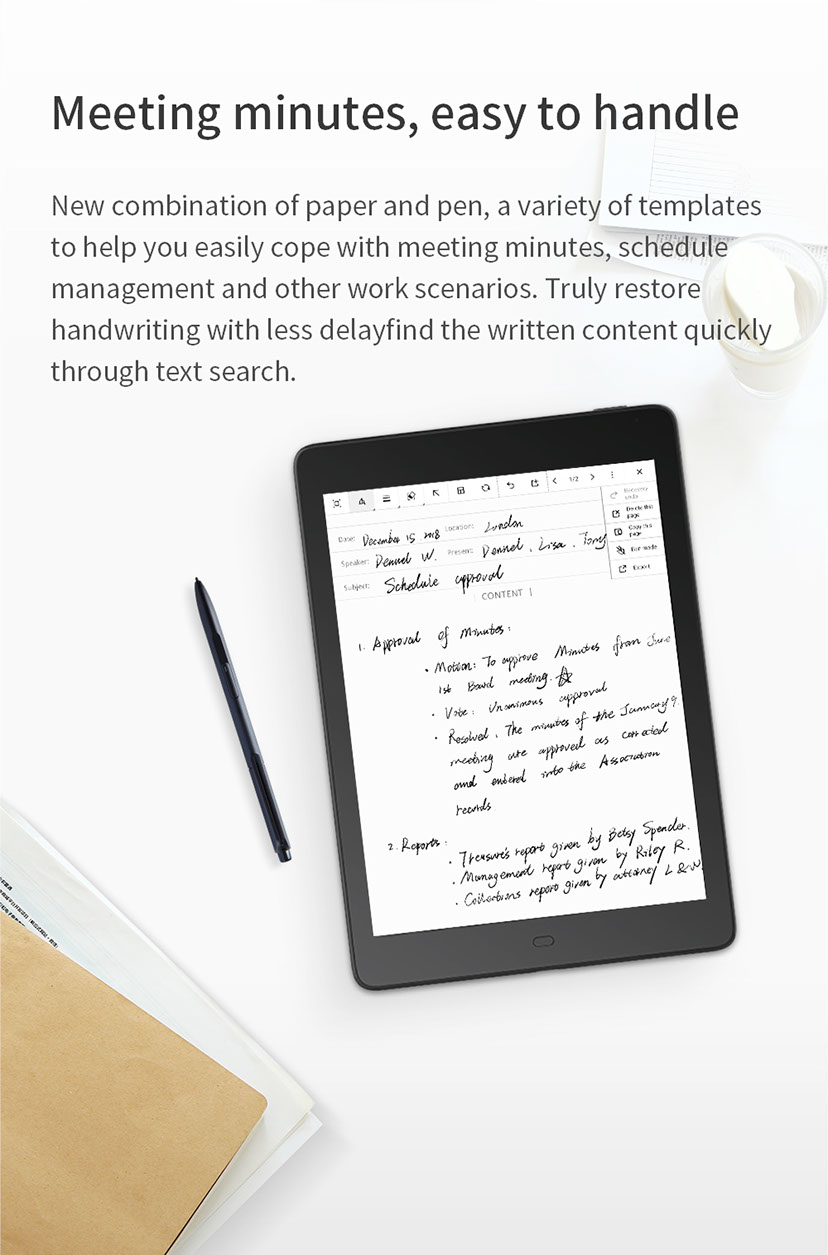 Meeting minutes, easy to handle
New combination of paper and pen, a variety of templates
to help you easily cope with meeting minutes, schedule
management and other work scenarios. Truly restore
handwriting with less delayfind the written content quickly
through text search.
1/2
Delete this
page
Copy this
page
Export
Date: December 15 2018 Location: London
Speaker: Dennel W. Present: Dennel, Lisa, Tony
Subject: Schedule approval
CONTENT
1. Approval of Minutes:
· Motion: To approve Minutes from June
1st Board meeting.
· Vote: Unanimous approval
· Resolved, The minutes of the January 9.
meeting are approved as corrected
and entered into the Association
records
2. Reports:
· Treasure's report given by Betsy Spender.
· Management report given by Riley R.
· Collections report given by attorney L & W.